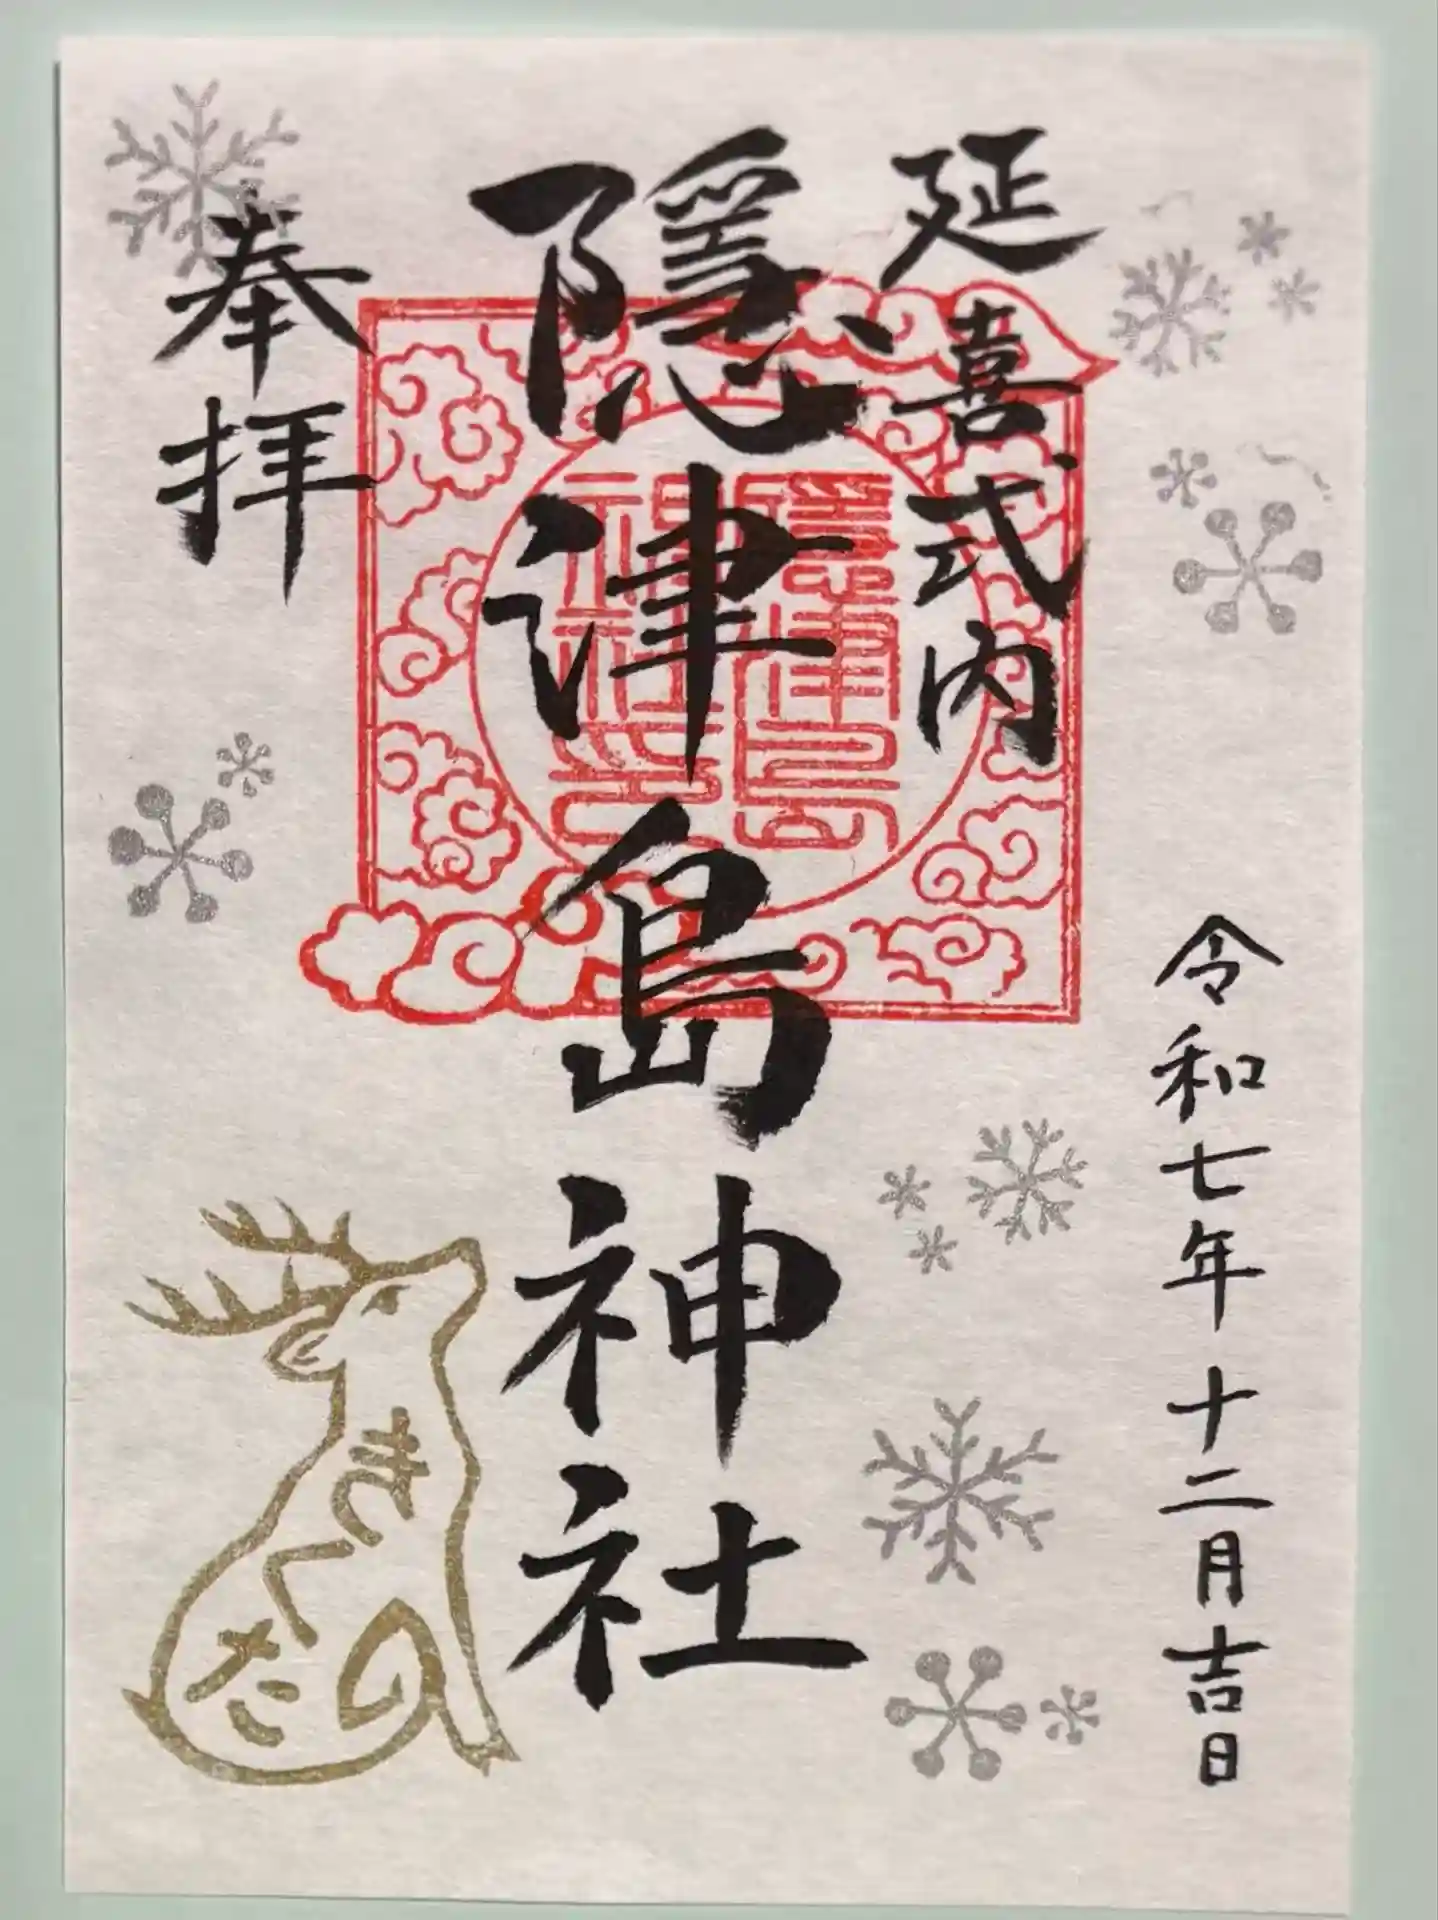 延喜式内
令和七年十二月吉日
隠津島神社
隠津島
神社之印
奉拝
きくた